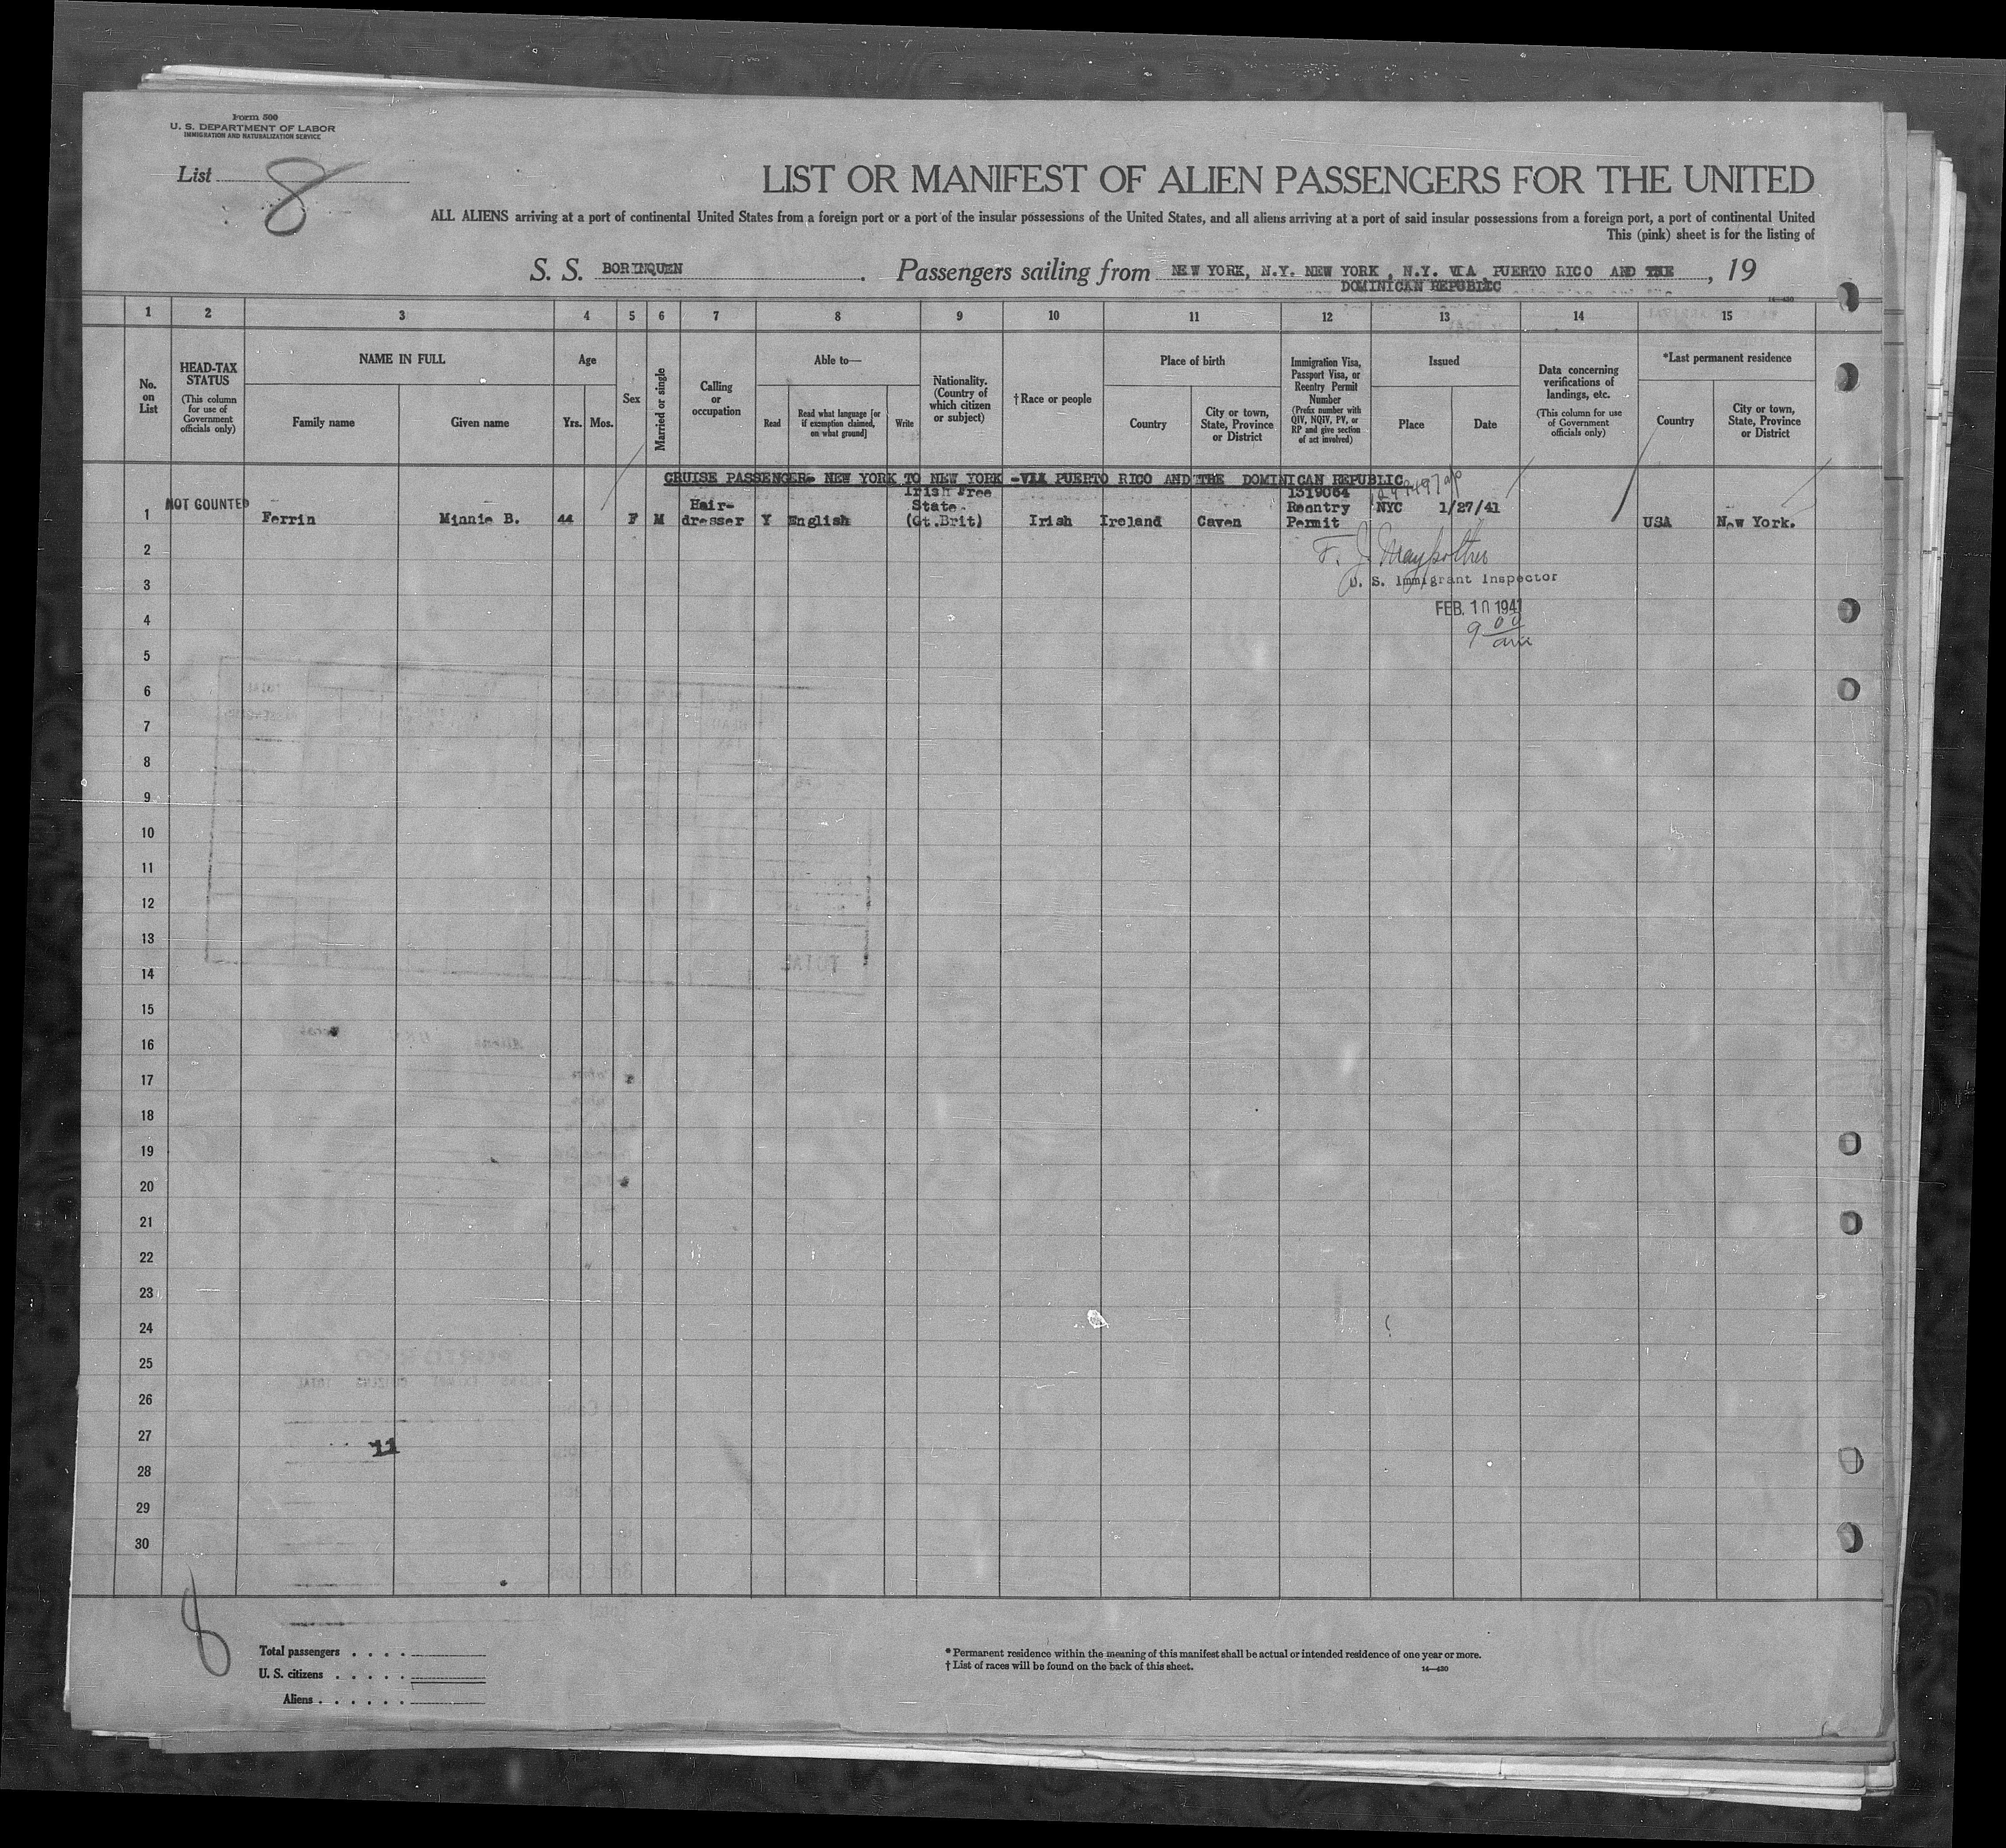 Form 500
U. S. DEPARTMENT OF LABOR
IMMIGRATION AND NATURALIZATION SERVICE
List 8
LIST OR MANIFEST OF ALIEN PASSENGERS FOR THE UNITED
ALL ALIENS arriving at a port of continental United States from a foreign port or a port of the insular possessions of the United States, and all aliens arriving at a port of said insular possessions from a foreign port, a port of continental United
This (pink) sheet is for the listing of
S. S. BORINQUEN. Passengers sailing from NEW YORK, N.Y. NEW YORK, N.Y. VIA PUERTO RICO AND THE, 19
DOMINICAN REPUBLIC
14—430
1 2 3 4 5 6 7 8 9 10 11 12 13 14 15
No. on List
HEAD-TAX STATUS
(This column for use of Government officials only)
NAME IN FULL
Family name
Given name
Age
Yrs.
Mos.
Sex
Married or single
Calling or occupation
Able to—
Read
Read what language [or if exemption claimed, on what ground]
Write
Nationality. (Country of which citizen or subject)
†Race or people
Place of birth
Country
City or town, State, Province or District
Immigration Visa, Passport Visa, or Reentry Permit Number
(Prefix number with QIV, NQIV, PV, or RP and give section of act involved)
Issued
Place
Date
Data concerning verifications of landings, etc.
(This column for use of Government officials only)
*Last permanent residence
Country
City or town, State, Province or District
CRUISE PASSENGER- NEW YORK TO NEW YORK -VIA PUERTO RICO AND THE DOMINICAN REPUBLIC
NOT COUNTED
1 Ferrin Minnie B. 44 F M Hair-dresser Y English Irish Free State (Gt.Brit) Irish Ireland Caven 1319064 Reentry Permit NYC 1/27/41 USA New York.
F. J. Maypother
U. S. Immigrant Inspector
FEB. 10 1941
9 00 am
2
3
4
5
6
7
8
9
10
11
12
13
14
15
16
17
18
19
20
21
22
23
24
25
26
27
11
28
29
30
8
Total passengers
U. S. citizens
Aliens
* Permanent residence within the meaning of this manifest shall be actual or intended residence of one year or more.
† List of races will be found on the back of this sheet.
14—430